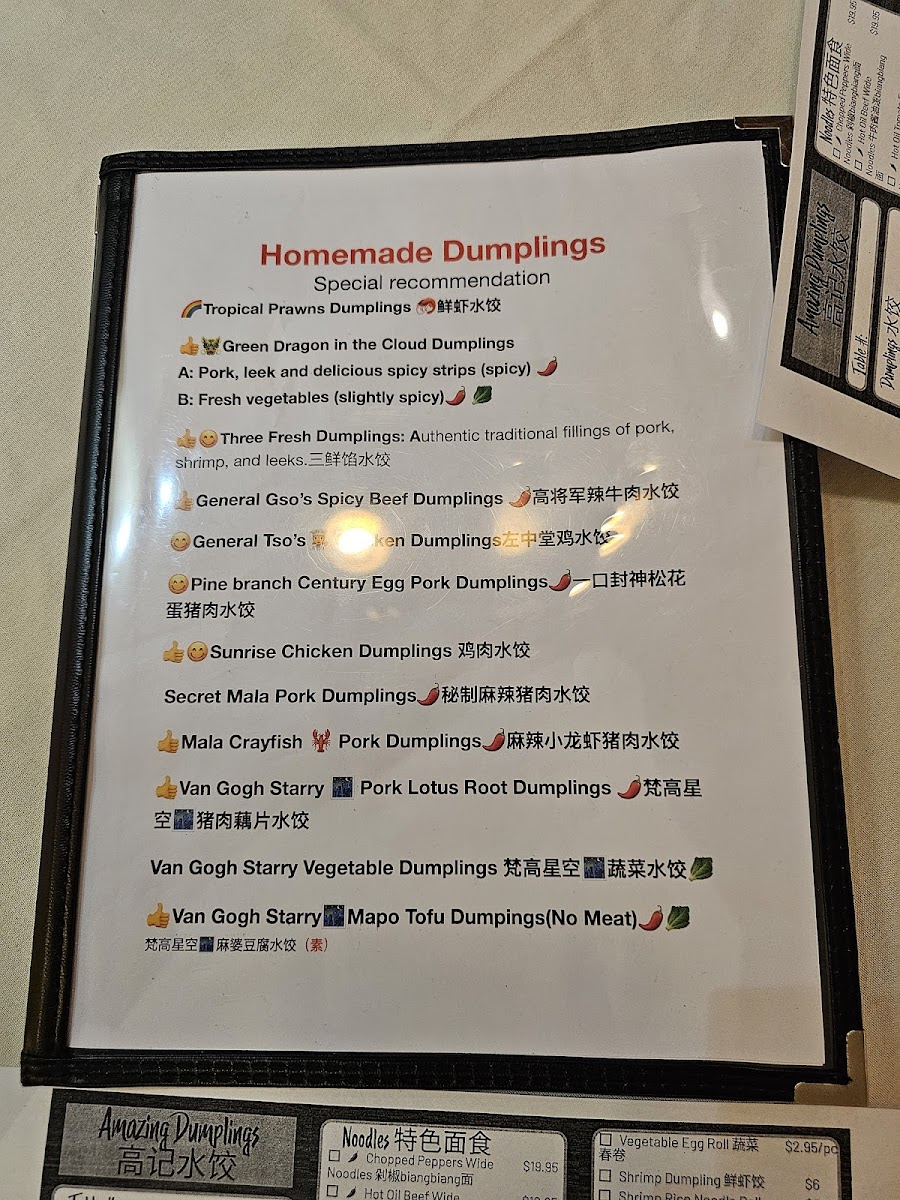 Homemade Dumplings
Special recommendation
🌈Tropical Prawns Dumplings 🦐鲜虾水饺
👍🐲Green Dragon in the Cloud Dumplings
A: Pork, leek and delicious spicy strips (spicy) 🌶️
B: Fresh vegetables (slightly spicy)🌶️ 🥬
👍😋Three Fresh Dumplings: Authentic traditional fillings of pork,
shrimp, and leeks.三鲜馅水饺
👍General Gso's Spicy Beef Dumplings 🌶️高将军辣牛肉水饺
😋General Tso's Chicken Dumplings左中堂鸡水饺
😋Pine branch Century Egg Pork Dumplings🌶️一口封神松花
蛋猪肉水饺
👍😋Sunrise Chicken Dumplings 鸡肉水饺
Secret Mala Pork Dumplings🌶️秘制麻辣猪肉水饺
👍Mala Crayfish 🦞 Pork Dumplings🌶️麻辣小龙虾猪肉水饺
👍Van Gogh Starry 🌃 Pork Lotus Root Dumplings 🌶️梵高星
空🌃猪肉藕片水饺
Van Gogh Starry Vegetable Dumplings 梵高星空🌃蔬菜水饺🥬
👍Van Gogh Starry🌃Mapo Tofu Dumpings(No Meat)🌶️🥬
梵高星空🌃麻婆豆腐水饺（素）
Amazing Dumplings
高记水饺
Noodles 特色面食
Chopped Peppers Wide
Noodles 剁椒biangbiang面
$19.95
Hot Oil Beef Wide
Vegetable Egg Roll 蔬菜
春卷
$2.95/pc
Shrimp Dumpling 鲜虾饺
$6
Shrimp Rice Noodle Roll
Amazing Dumplings
高记水饺
Table #:
Dumplings 水饺
Noodles 特色面食
Chopped Peppers Wide
Noodles 剁椒biangbiang面
$19.95
Hot Oil Beef Wide
Noodles 牛肉酱油泼biangbiang
面
$19.95